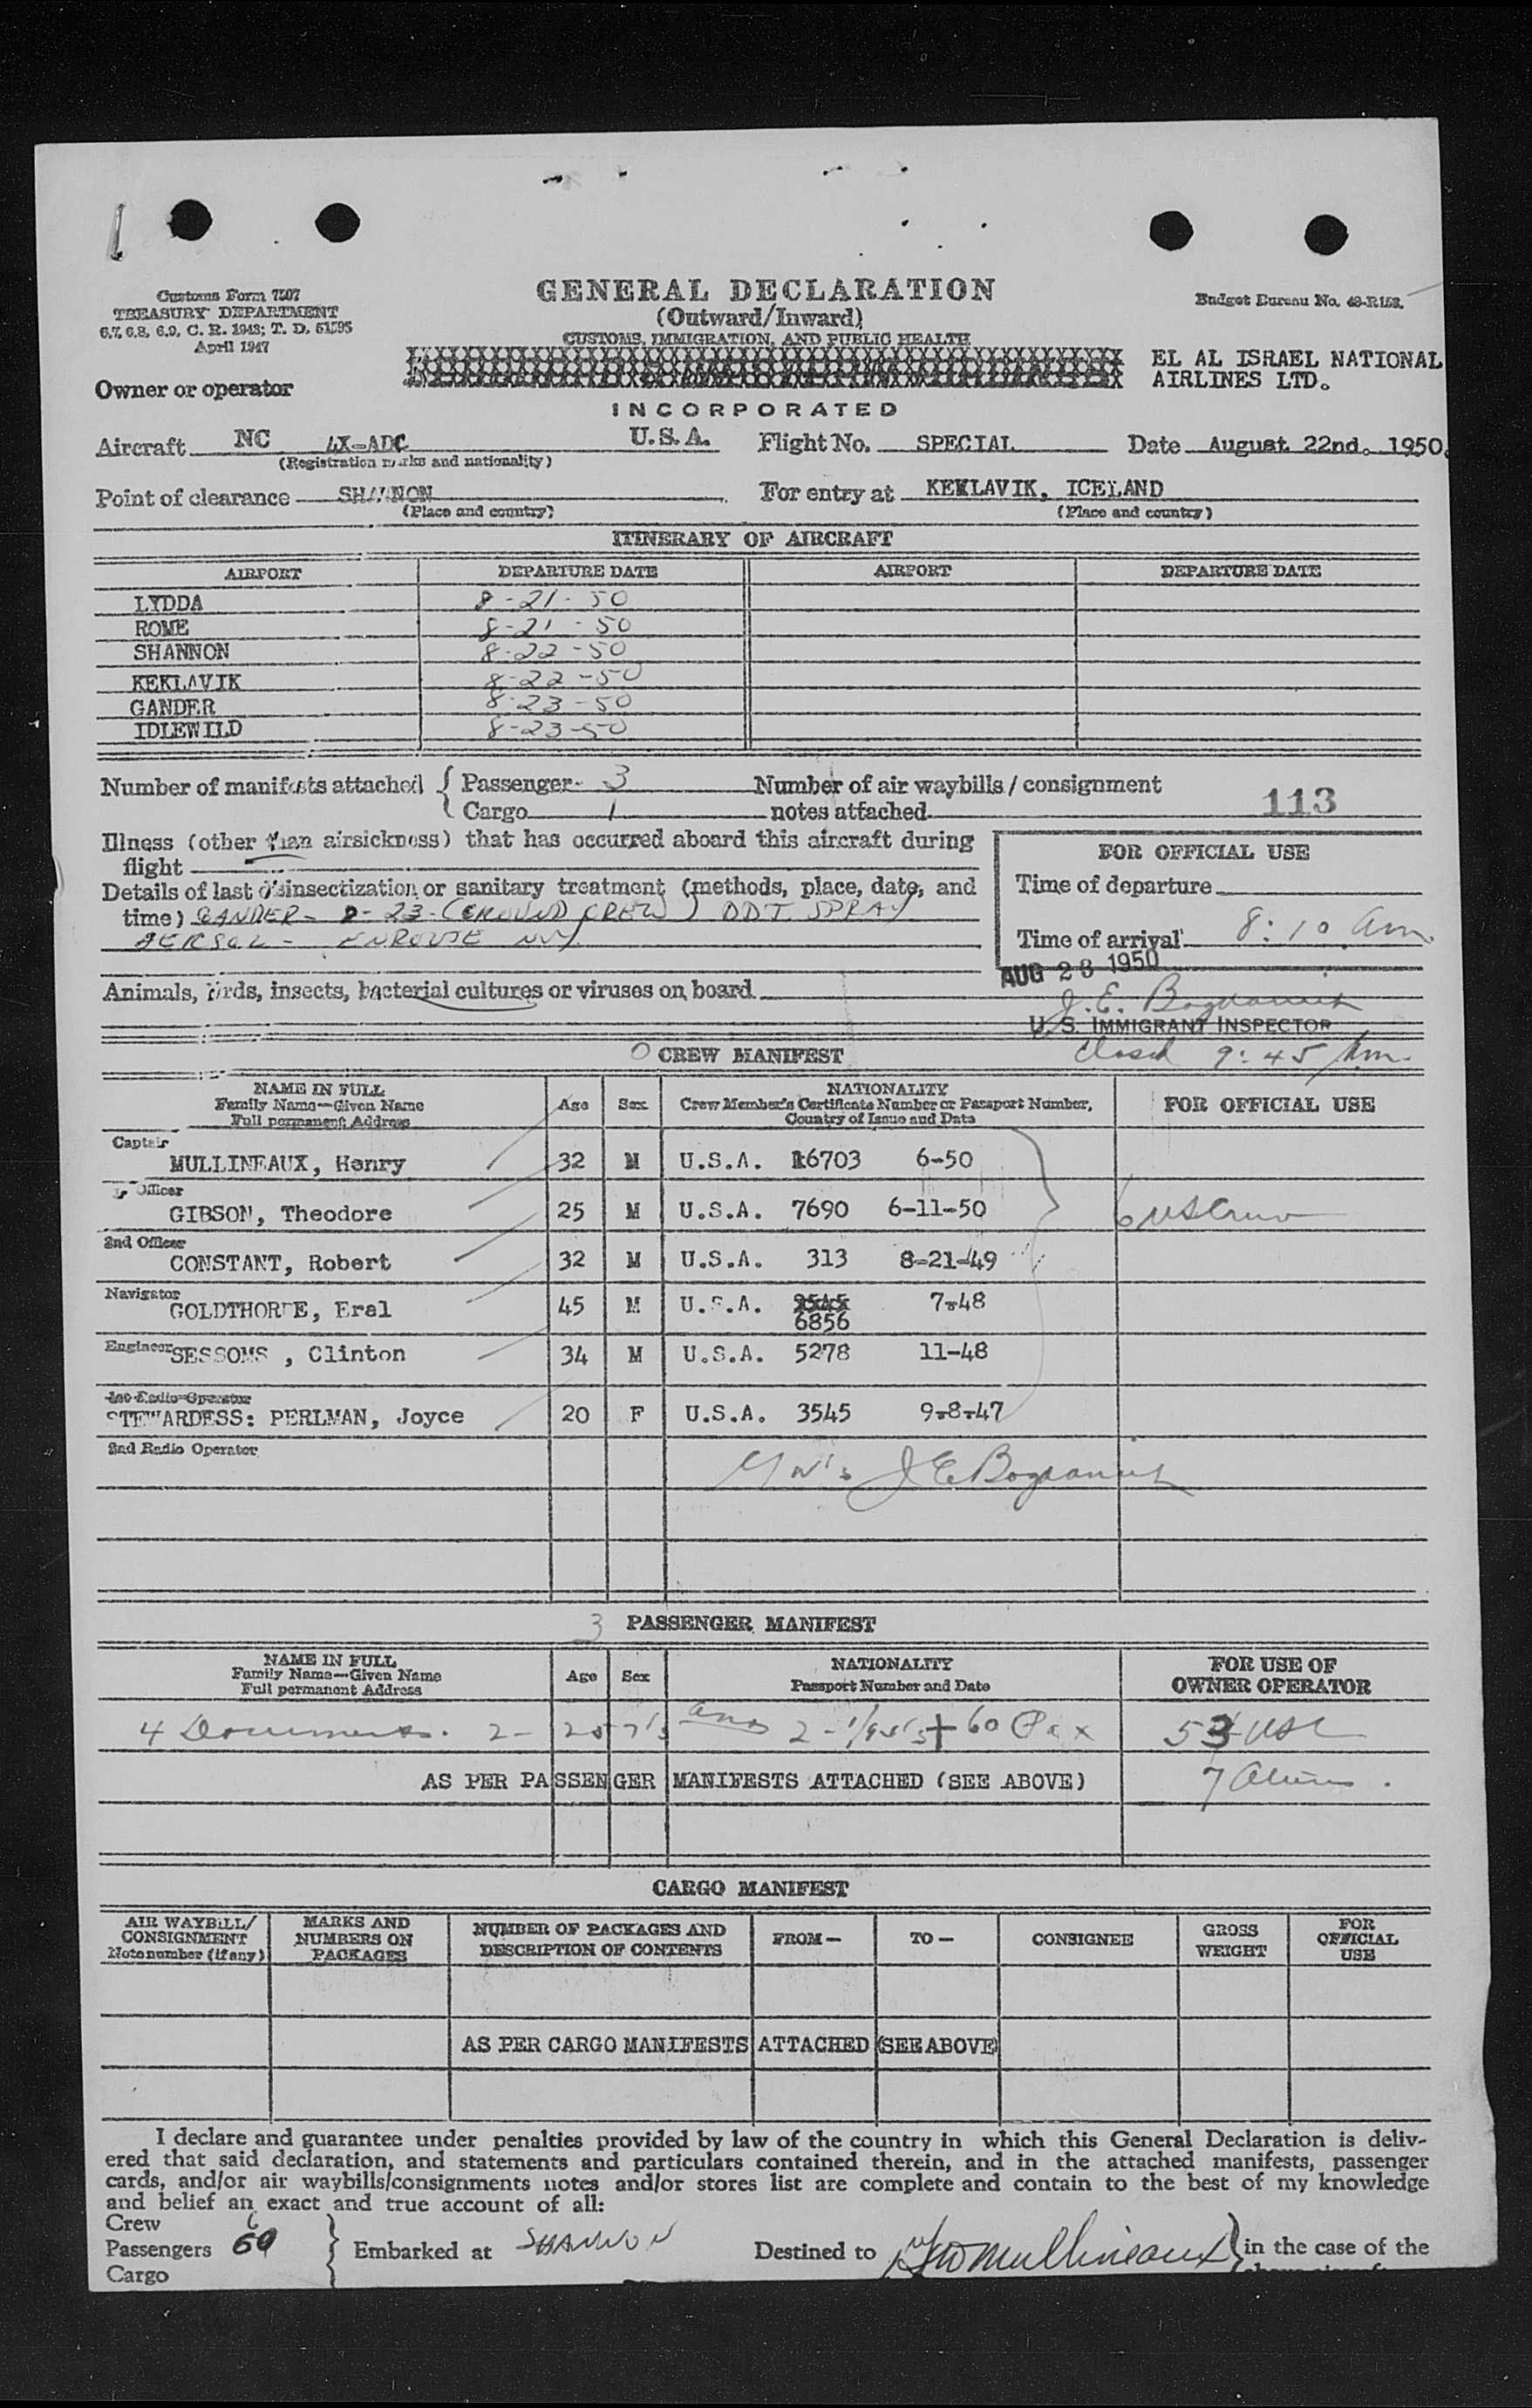 Customs Form 7507
TREASURY DEPARTMENT
6.7, 6.8, 6.9, C. R. 1943; T. D. 51595
April 1947
GENERAL DECLARATION
(Outward/Inward)
CUSTOMS, IMMIGRATION, AND PUBLIC HEALTH
Budget Bureau No. 48-R153.
Owner or operator
EL AL ISRAEL NATIONAL
AIRLINES LTD.
INCORPORATED
Aircraft NC 4X-ADC U.S.A. Flight No. SPECIAL Date August 22nd. 1950.
(Registration marks and nationality)
Point of clearance SHANNON For entry at KEKLAVIK, ICELAND
(Place and country) (Place and country)
ITINERARY OF AIRCRAFT
AIRPORT DEPARTURE DATE AIRPORT DEPARTURE DATE
LYDDA 8-21-50
ROME 8-21-50
SHANNON 8-22-50
KEKLAVIK 8-22-50
GANDER 8-23-50
IDLEWILD 8-23-50
Number of manifests attached { Passenger 3 Number of air waybills / consignment
Cargo 1 notes attached 113
Illness (other than airsickness) that has occurred aboard this aircraft during
flight
Details of last disinsectization or sanitary treatment (methods, place, date, and
time) GANDER - 8-23-(GROUND CREW) DDT SPRAY
ENROUTE NY
FOR OFFICIAL USE
Time of departure
Time of arrival 8:10 am.
AUG 23 1950
Animals, birds, insects, bacterial cultures or viruses on board
J. E. Bogdanich
U. S. IMMIGRANT INSPECTOR
Closed 9:45 Am.
CREW MANIFEST
NAME IN FULL
Family Name—Given Name
Full permanent Address
Age Sex
NATIONALITY
Crew Member's Certificate Number or Passport Number,
Country of Issue and Date
FOR OFFICIAL USE
Captain
MULLINEAUX, Henry 32 M U.S.A. 16703 6-50
Officer
GIBSON, Theodore 25 M U.S.A. 7690 6-11-50 6 US Crew
2nd Officer
CONSTANT, Robert 32 M U.S.A. 313 8-21-49
Navigator
GOLDTHORPE, Eral 45 M U.S.A. 3545 7-48
6856
Engineer SESSOMS , Clinton 34 M U.S.A. 5278 11-48
1st Radio Operator
STEWARDESS: PERLMAN, Joyce 20 F U.S.A. 3545 9-8-47
2nd Radio Operator
J E Bogdanich
3 PASSENGER MANIFEST
NAME IN FULL
Family Name—Given Name
Full permanent Address
Age Sex
NATIONALITY
Passport Number and Date
FOR USE OF
OWNER OPERATOR
4 Documents. 2- and 2- + 60 Pax 53 USC
AS PER PASSENGER MANIFESTS ATTACHED (SEE ABOVE) 7 Aliens.
CARGO MANIFEST
AIR WAYBILL/
CONSIGNMENT
Note number (if any)
MARKS AND
NUMBERS ON
PACKAGES
NUMBER OF PACKAGES AND
DESCRIPTION OF CONTENTS
FROM— TO— CONSIGNEE
GROSS
WEIGHT
FOR
OFFICIAL
USE
AS PER CARGO MANIFESTS ATTACHED (SEE ABOVE)
I declare and guarantee under penalties provided by law of the country in which this General Declaration is deliv-
ered that said declaration, and statements and particulars contained therein, and in the attached manifests, passenger
cards, and/or air waybills/consignments notes and/or stores list are complete and contain to the best of my knowledge
and belief an exact and true account of all:
Crew 6
Passengers 60 } Embarked at SHANNON Destined to HW Mullineaux } in the case of the
Cargo